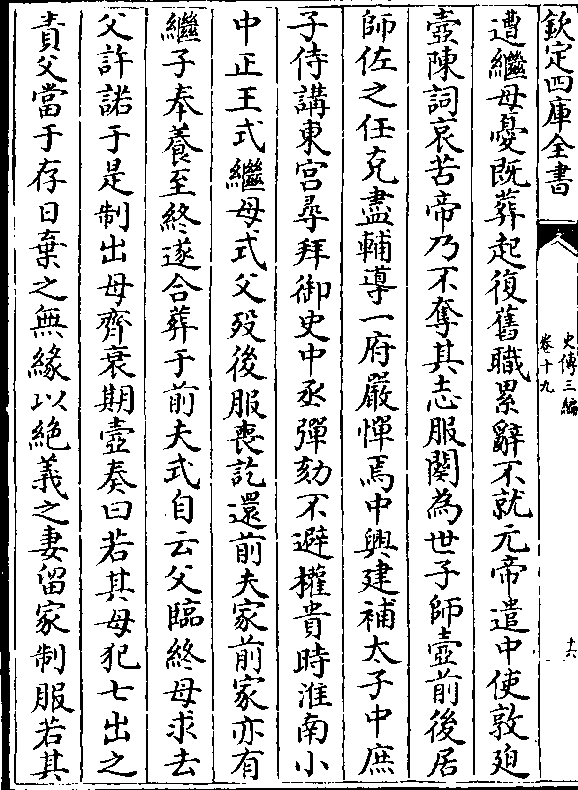 欽定四庫全書
史傳三編
卷十九
十六
遭繼母憂既葬起復舊職累辭不就元帝遣中使敦廹
壺陳詞哀苦帝乃不奪其志服闋為世子師壺前後居
師佐之任克盡輔導一府嚴憚焉中興建補太子中庶
子侍講東宫尋拜御史中丞彈劾不避權貴時淮南小
中正王式繼母式父殁後服喪訖還前夫家前家亦有
繼子奉養至終遂合葬于前夫式自云父臨終母求去
父許諾于是制出母齊衰期壺奏曰若其母犯七出之
責父當于存日棄之無緣以絶義之妻留家制服若其